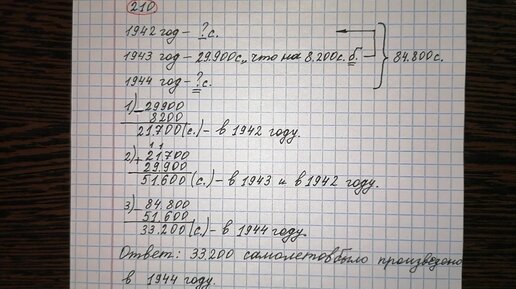 210
1942 год - ? с.
1943 год - 29.900с., что на 8.200с. б. 84.800с.
1944 год - ? с.
1) - 29900
8200
21.700 (с.) - в 1942 году.
1 1
2) + 21.700
29.900
51.600 (с.) - в 1943 и в 1942 году.
3) - 84.800
51.600
33.200 (с.) - в 1944 году.
Ответ: 33.200 самолетов было произведено
в 1944 году.